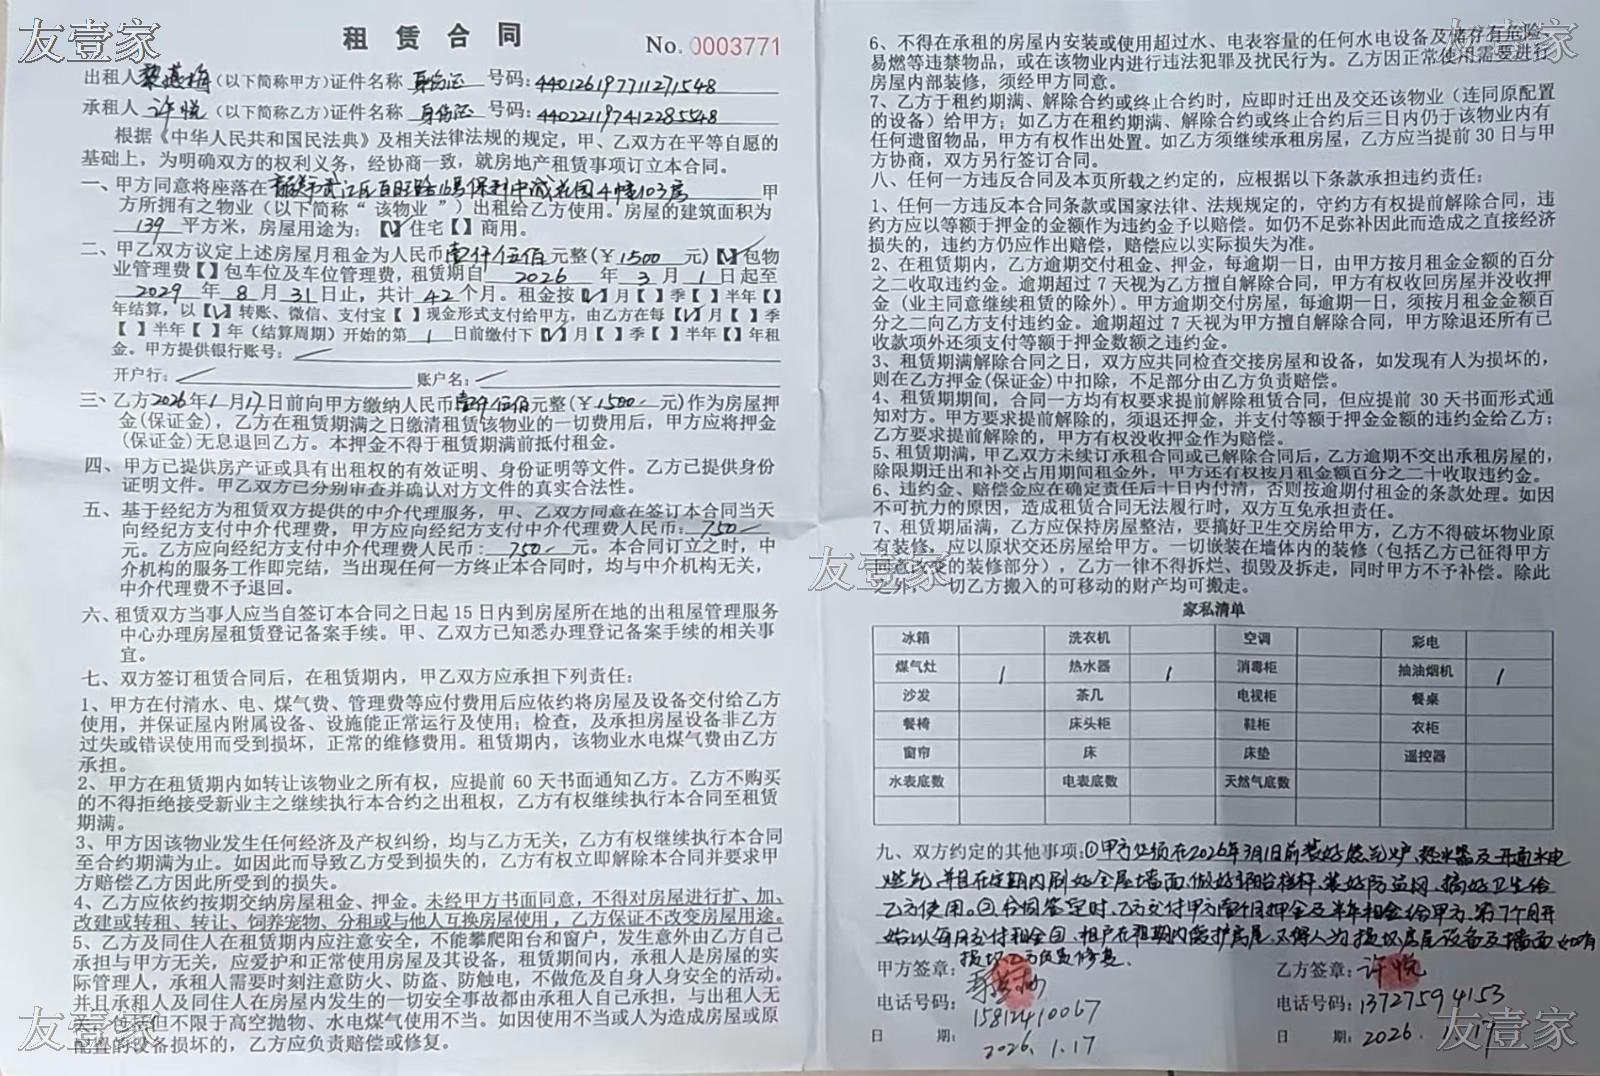 友壹家
友壹家
租 赁 合 同
No. 0003771
出租人 (以下简称甲方)证件名称 身份证 号码: 440126197711271548
承租人 许悦 (以下简称乙方)证件名称 身份证 号码: 440221197412285548
根据《中华人民共和国民法典》及相关法律法规的规定，甲、乙双方在平等自愿的
基础上，为明确双方的权利义务，经协商一致，就房地产租赁事项订立本合同。
一、甲方同意将座落在 武江区百旺路16号保利中誠花园4幢103房 甲
方所拥有之物业（以下简称“该物业”）出租给乙方使用。房屋的建筑面积为
139 平方米，房屋用途为：【√】住宅【 】商用。
二、甲乙双方议定上述房屋月租金为人民币壹仟伍佰元整(￥1500 元)【√】包物
业管理费【 】包车位及车位管理费，租赁期自 2026 年 3 月 1 日起至
2029 年 8 月 31 日止，共计 42 个月。租金按【√】月【 】季【 】半年【 】
年结算，以【√】转账、微信、支付宝【 】现金形式支付给甲方，由乙方在每【√】月【 】季
【 】半年【 】年（结算周期）开始的第 1 日前缴付下【√】月【 】季【 】半年【 】年租
金。甲方提供银行账号：
开户行： 账户名：
三、乙方2026年1月17日前向甲方缴纳人民币壹仟伍佰元整(￥1500 元)作为房屋押
金(保证金)，乙方在租赁期满之日缴清租赁该物业的一切费用后，甲方应将押金
(保证金)无息退回乙方。本押金不得于租赁期满前抵付租金。
四、甲方已提供房产证或具有出租权的有效证明、身份证明等文件。乙方已提供身份
证明文件。甲乙双方已分别审查并确认对方文件的真实合法性。
五、基于经纪方为租赁双方提供的中介代理服务，甲、乙双方同意在签订本合同当天
向经纪方支付中介代理费，甲方应向经纪方支付中介代理费人民币：750
元。乙方应向经纪方支付中介代理费人民币：750 元。本合同订立之时，中
介机构的服务工作即完结，当出现任何一方终止本合同时，均与中介机构无关，
中介代理费不予退回。
六、租赁双方当事人应当自签订本合同之日起 15 日内到房屋所在地的出租屋管理服务
中心办理房屋租赁登记备案手续。甲、乙双方已知悉办理登记备案手续的相关事
宜。
七、双方签订租赁合同后，在租赁期内，甲乙双方应承担下列责任：
1、甲方在付清水、电、煤气费、管理费等应付费用后应依约将房屋及设备交付给乙方
使用，并保证屋内附属设备、设施能正常运行及使用；检查，及承担房屋设备非乙方
过失或错误使用而受到损坏，正常的维修费用。租赁期内，该物业水电煤气费由乙方
承担。
2、甲方在租赁期内如转让该物业之所有权，应提前 60 天书面通知乙方。乙方不购买
的不得拒绝接受新业主之继续执行本合约之出租权，乙方有权继续执行本合同至租赁
期满。
3、甲方因该物业发生任何经济及产权纠纷，均与乙方无关，乙方有权继续执行本合同
至合约期满为止。如因此而导致乙方受到损失的，乙方有权立即解除本合同并要求甲
方赔偿乙方因此所受到的损失。
4、乙方应依约按期交纳房屋租金、押金。未经甲方书面同意，不得对房屋进行扩、加、
改建或转租、转让、饲养宠物、分租或与他人互换房屋使用，乙方保证不改变房屋用途。
5、乙方及同住人在租赁期内应注意安全，不能攀爬阳台和窗户，发生意外由乙方自己
承担与甲方无关，应爱护和正常使用房屋及其设备，租赁期间内，承租人是房屋的实
际管理人，承租人需要时刻注意防火、防盗、防触电，不做危及自身人身安全的活动。
并且承租人及同住人在房屋内发生的一切安全事故都由承租人自己承担，与出租人无
关，包括但不限于高空抛物、水电煤气使用不当。如因使用不当或人为造成房屋或原
配置的设备损坏的，乙方应负责赔偿或修复。
6、不得在承租的房屋内安装或使用超过水、电表容量的任何水电设备及储存有危险、
易燃等违禁物品，或在该物业内进行违法犯罪及扰民行为。乙方因正常使用需要进行
房屋内部装修，须经甲方同意。
7、乙方于租约期满、解除合约或终止合约时，应即时迁出及交还该物业（连同原配置
的设备）给甲方；如乙方在租约期满、解除合约或终止合约后三日内仍于该物业内有
任何遗留物品，甲方有权作出处置。如乙方须继续承租房屋，乙方应当提前 30 日与甲
方协商，双方另行签订合同。
八、任何一方违反合同及本页所载之约定的，应根据以下条款承担违约责任：
1、任何一方违反本合同条款或国家法律、法规规定的，守约方有权提前解除合同，违
约方应以等额于押金的金额作为违约金予以赔偿。如仍不足弥补因此而造成之直接经济
损失的，违约方仍应作出赔偿，赔偿应以实际损失为准。
2、在租赁期内，乙方逾期交付租金、押金，每逾期一日，由甲方按月租金金额的百分
之二收取违约金。逾期超过 7 天视为乙方擅自解除合同，甲方有权收回房屋并没收押
金（业主同意继续租赁的除外）。甲方逾期交付房屋，每逾期一日，须按月租金金额百
分之二向乙方支付违约金。逾期超过 7 天视为甲方擅自解除合同，甲方除退还所有已
收款项外还须支付等额于押金数额之违约金。
3、租赁期满解除合同之日，双方应共同检查交接房屋和设备，如发现有人为损坏的，
则在乙方押金(保证金)中扣除，不足部分由乙方负责赔偿。
4、租赁期期间，合同一方均有权要求提前解除租赁合同，但应提前 30 天书面形式通
知对方。甲方要求提前解除的，须退还押金，并支付等额于押金金额的违约金给乙方；
乙方要求提前解除的，甲方有权没收押金作为赔偿。
5、租赁期满，甲乙双方未续订承租合同或已解除合同后，乙方逾期不交出承租房屋的，
除限期迁出和补交占用期间租金外，甲方还有权按月租金额百分之二十收取违约金。
6、违约金、赔偿金应在确定责任后十日内付清，否则按逾期付租金的条款处理。如因
不可抗力的原因，造成租赁合同无法履行时，双方互免承担责任。
7、租赁期届满，乙方应保持房屋整洁，要搞好卫生交房给甲方，乙方不得破坏物业原
有装修，应以原状交还房屋给甲方。一切嵌装在墙体内的装修（包括乙方已征得甲方
同意改变的装修部分），乙方一律不得拆烂、损毁及拆走，同时甲方不予补偿。除此
之外，一切乙方搬入的可移动的财产均可搬走。
友壹家
家私清单
冰箱 洗衣机 空调 彩电
煤气灶 1 热水器 1 消毒柜 抽油烟机 1
沙发 茶几 电视柜 餐桌
餐椅 床头柜 鞋柜 衣柜
窗帘 床 床垫 遥控器
水表底数 电表底数 天然气底数
九、双方约定的其他事项：①甲方必须在2026年3月1日前装好煤气炉、热水器及开通水电
燃气，并且在定期内刷好全屋墙面，做好阳台栏杆，装好防盗网，搞好卫生给
乙方使用。②合同签定时，乙方交付甲方壹个月押金及半年租金给甲方，第7个月开
始以每月交付租金。租户在租期内爱护房屋，不得人为损坏房屋设备及墙面，如有
损坏乙方负责修复。
甲方签章：
电话号码：15812410067
日 期： 2026.1.17
乙方签章：许悦
电话号码：13727594153
日 期：2026.1.17
友壹家
友壹家